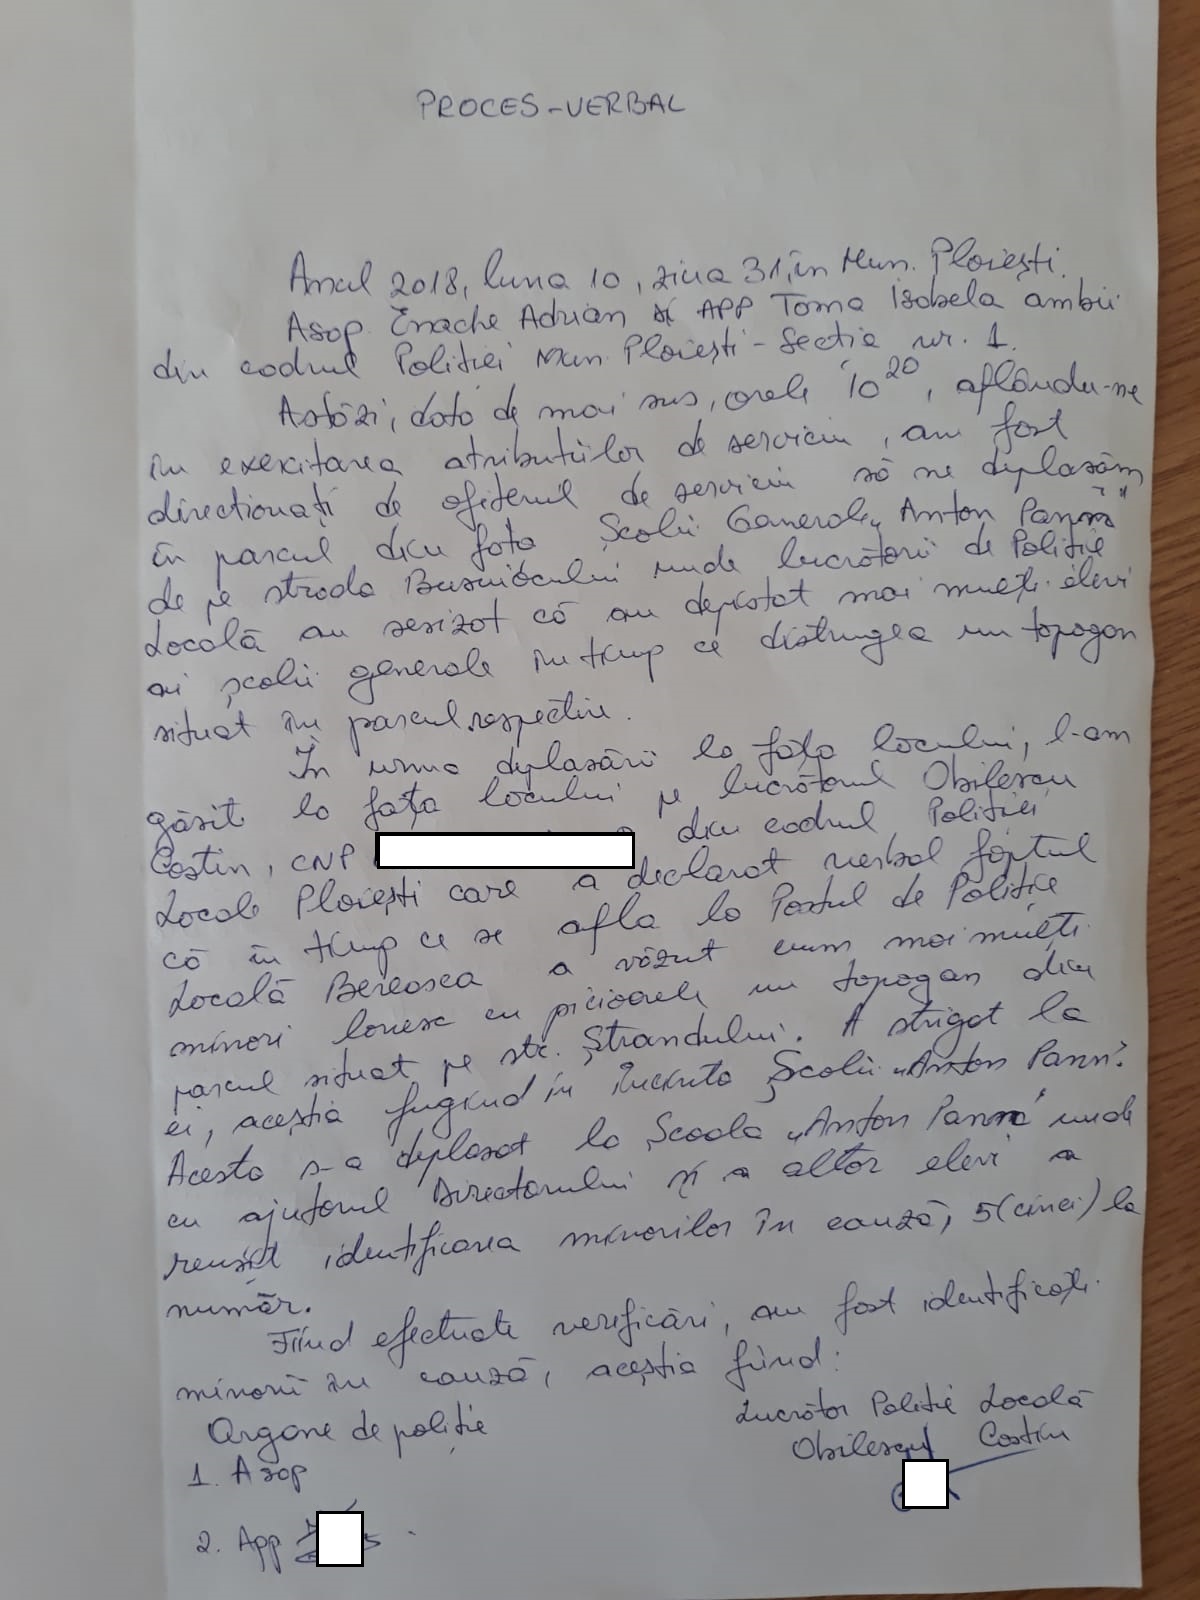 PROCES-VERBAL
Anul 2018, luna 10, ziua 31, în Mun. Ploiești.
Asop. Enache Adrian și APP Toma Isabela ambii
din cadrul Poliției Mun. Ploiești - Secția nr. 1.
Astăzi, data de mai sus, orele 10²⁰, aflându-ne
în exercitarea atribuțiilor de serviciu, am fost
direcționați de ofițerul de serviciu să ne deplasăm
în parcul din fața Școlii Generale „Anton Pann"
de pe strada Busuiocului unde lucrătorii de Poliție
Locală au sesizat că au depistat mai mulți elevi
ai școlii generale în timp ce distrugea un topogan
situat în parcul respectiv.
În urma deplasării la fața locului, l-am
găsit la fața locului pe lucrătorul Obilescu
Costin, CNP din cadrul Poliției
Locale Ploiești care a declarat verbal faptul
că în timp ce se afla la Postul de Poliție
Locală Bereasca a văzut cum mai mulți
minori lovesc cu picioarele un topogan din
parcul situat pe str. Ștrandului. A strigat la
ei, aceștia fugind în incinta Școlii „Anton Pann".
Acesta s-a deplasat la Școala „Anton Pann" unde
cu ajutorul Directorului și a altor elevi a
reușit identificarea minorilor în cauză, 5 (cinci) la
număr.
Fiind efectuate verificări, au fost identificați
minorii în cauză, aceștia fiind:
Organe de poliție
Lucrător Poliție Locală
Obilescu Costin
1. Asop
2. App